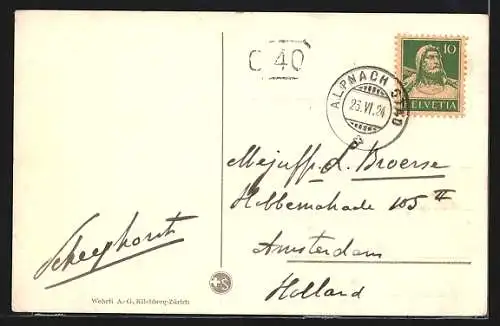 C 40
10
HELVETIA
ALPNACH STAD
23.VI.24
Mejuffr. L. Broerse
Hobbemakade 105 II
Amsterdam
Holland
Wehrli A.-G., Kilchberg-Zürich